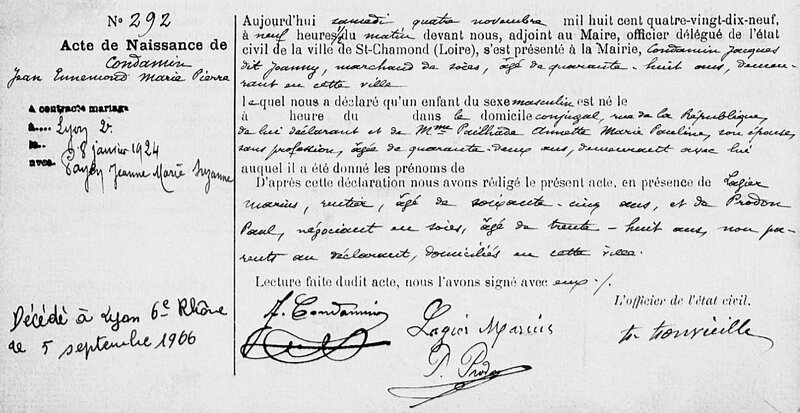 N° 292
Acte de Naissance de
Condamin
Jean Ennemond Marie Pierre
A contracté mariage
à Lyon 2e
le 8 janvier 1924
avec Payen Jeanne Marie Suzanne
Décédé à Lyon 6e Rhône
le 5 septembre 1966
Aujourd'hui samedi quatre novembre mil huit cent quatre-vingt-dix-neuf,
à neuf heures du matin devant nous, adjoint au Maire, officier délégué de l'état
civil de la ville de St-Chamond (Loire), s'est présenté à la Mairie, Condamin Jacques
dit Joanny, marchand de soies, âgé de quarante-huit ans, demeu-
rant en cette ville
lequel nous a déclaré qu'un enfant du sexe masculin est né le
à heure du dans le domicile conjugal, rue de la République,
de lui déclarant et de Mme Pailhade Annette Marie Pauline, son épouse,
sans profession, âgée de quarante-deux ans, demeurant avec lui
auquel il a été donné les prénoms de
D'après cette déclaration nous avons rédigé le présent acte, en présence de Lagier
Marius, rentier, âgé de soixante-cinq ans, et de Prodon
Paul, négociant en soies, âgé de trente-huit ans, non pa-
rents au déclarant, domiciliés en cette ville.
Lecture faite dudit acte, nous l'avons signé avec eux ./.
L'officier de l'état civil.
J. Condamin
Lagier Marius
P. Prodon